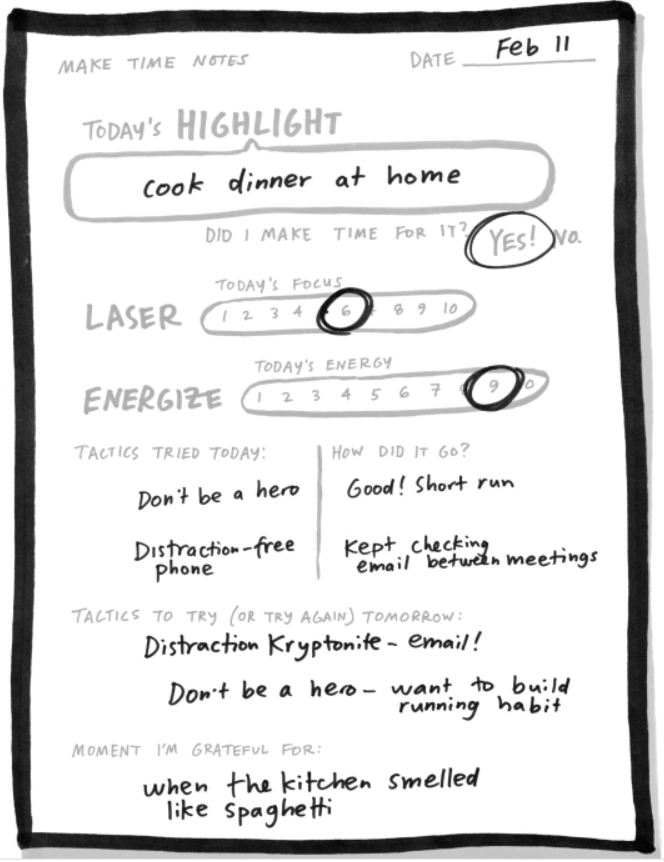 MAKE TIME NOTES DATE Feb 11
TODAY'S HIGHLIGHT
cook dinner at home
DID I MAKE TIME FOR IT? YES! NO.
TODAY'S FOCUS
LASER 1 2 3 4 6 8 9 10
TODAY'S ENERGY
ENERGIZE 1 2 3 4 5 6 7 9 0
TACTICS TRIED TODAY: HOW DID IT GO?
Don't be a hero Good! Short run
Distraction-free Kept checking
phone email between meetings
TACTICS TO TRY (OR TRY AGAIN) TOMORROW:
Distraction Kryptonite - email!
Don't be a hero - want to build
running habit
MOMENT I'M GRATEFUL FOR:
when the kitchen smelled
like spaghetti